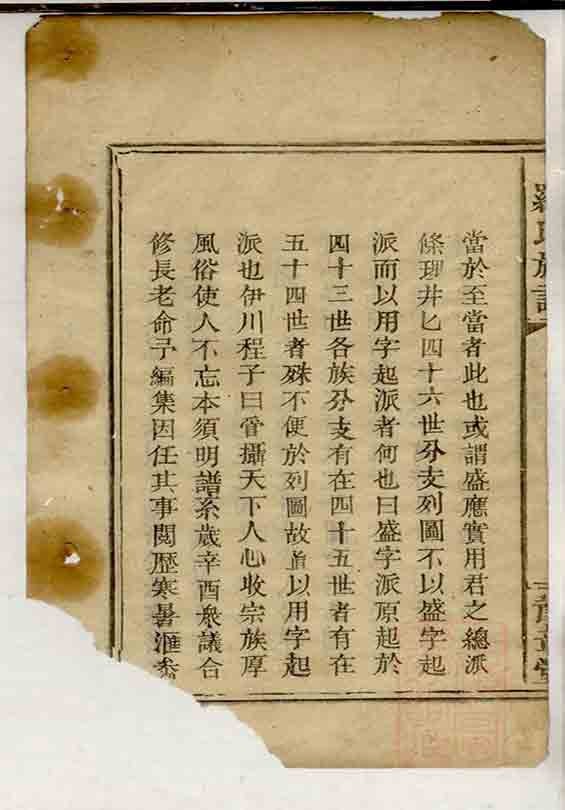 羅氏族譜
當於至當者此也或謂盛應實用君之總派
條理井匕四十六世分支列圖不以盛字起
派而以用字起派者何也曰盛字派原起於
四十三世各族分支有在四十五世者有在
五十四世者殊不便於列圖故直以用字起
派也伊川程子曰管攝天下人心收宗族厚
風俗使人不忘本須明譜系歲辛酉衆議合
修長老命予編集因任其事閱歷寒暑滙